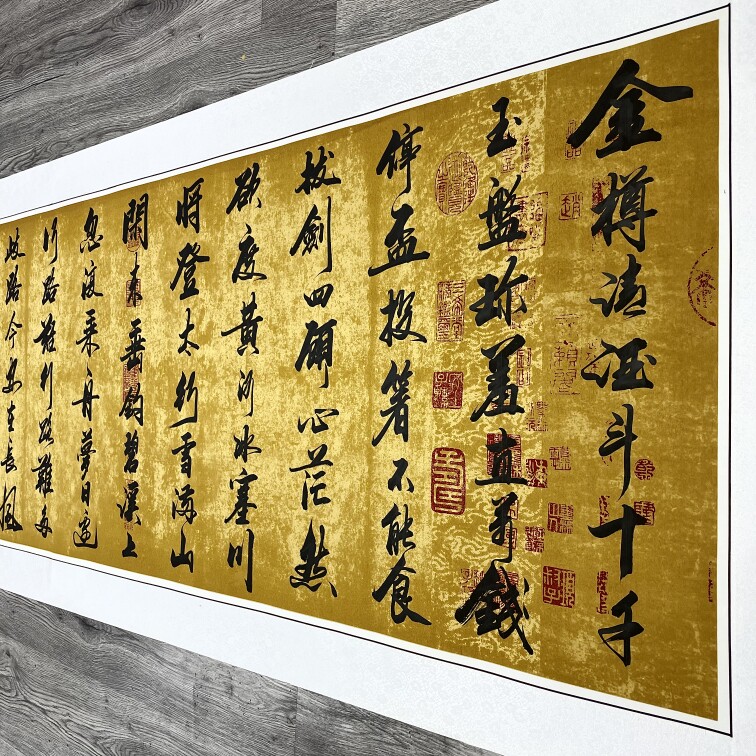 金樽清酒斗十千
玉盤珍羞直萬錢
停盃投箸不能食
拔劍四顧心茫然
欲度黃河冰塞川
將登太行雪滿山
閑來垂釣碧溪上
忽復乘舟夢日邊
行路難行路難多
岐路今安在長風